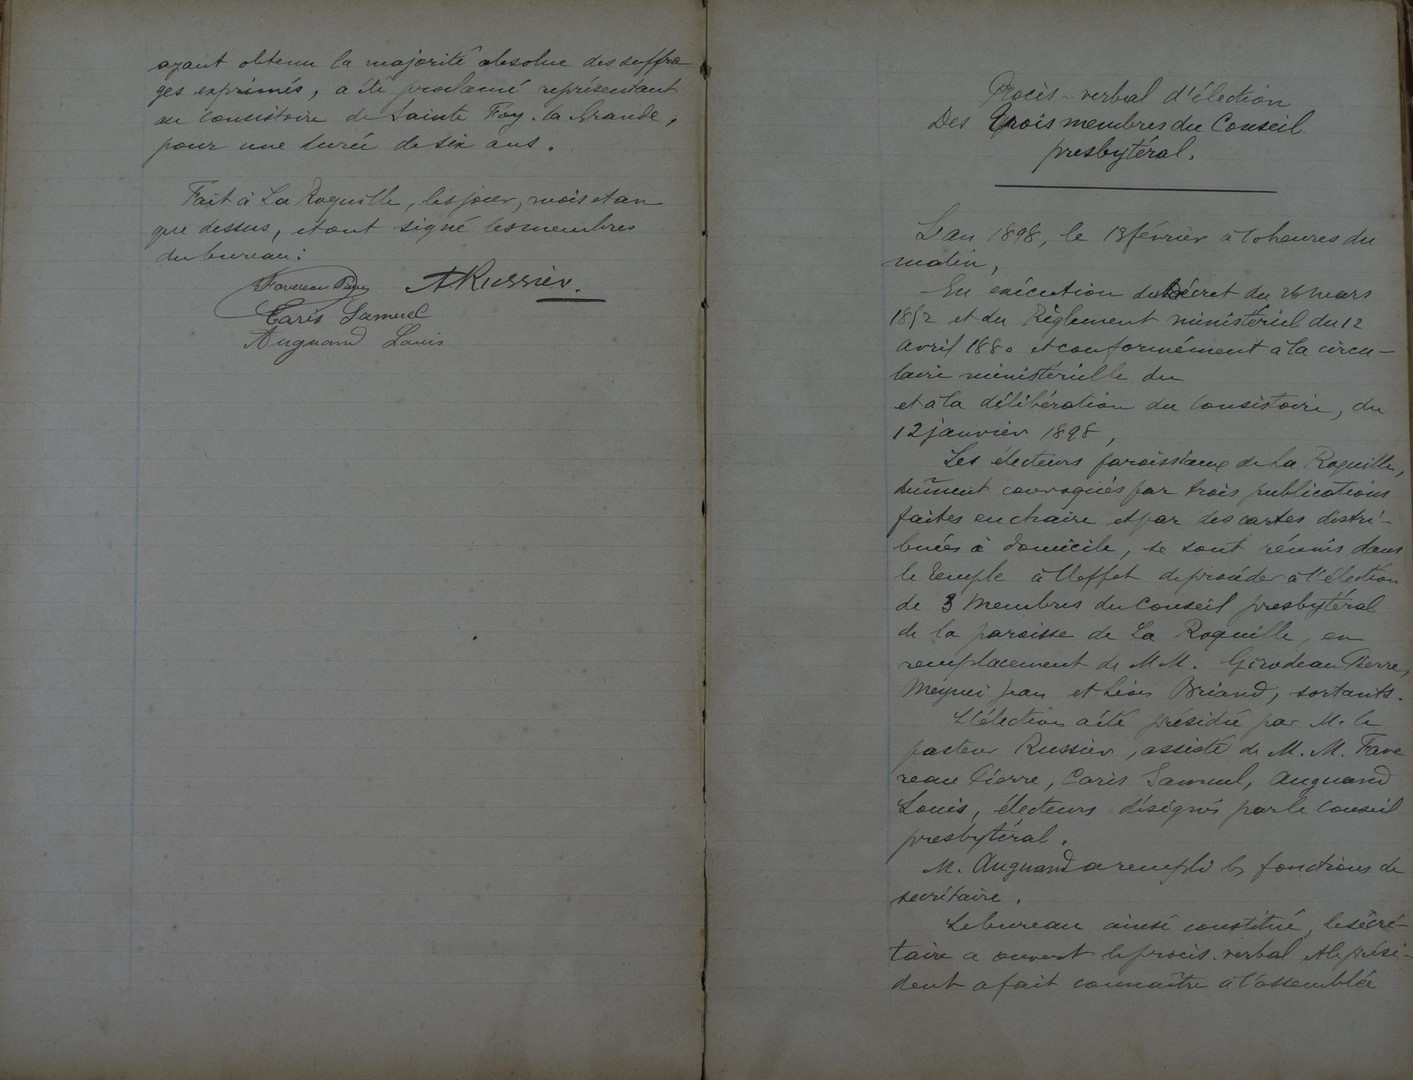 ayant obtenu la majorité absolue des suffra
ges exprimés, a été proclamé représentant
au Consistoire de Sainte Foy-la-Grande,
pour une durée de six ans.
Fait à La Roquille, les jour, mois et an
que dessus, et ont signé les membres
du bureau:
Favereau Pierre ARussier.
Caris Samuel
Augnand Louis
Procès-verbal d'élection
Des trois membres du Conseil
presbytéral.
L'an 1898, le 13 février à 10 heures du
matin,
En exécution du Décret du 26 mars
1852 et du Règlement ministériel du 12
Avril 1880 et conformément à la circu-
laire ministérielle du
et à la délibération du Consistoire, du
12 janvier 1898,
Les électeurs paroissiaux de La Roquille,
dûment convoqués par trois publications
faites en chaire et par des cartes distri-
buées à domicile, se sont réunis dans
le temple à l'effet de procéder à l'élection
de 3 Membres du Conseil presbytéral
de la paroisse de La Roquille, en
remplacement de MM. Girodeau Pierre,
Jean et Léon Briand, sortants.
L'élection a été présidée par M. le
pasteur Russier, assisté de M.M. Fave
reau Pierre, Caris Samuel, Augnand
Louis, électeurs désignés par le Conseil
presbytéral.
M. Augnand a rempli les fonctions de
secrétaire.
Le bureau ainsi constitué, le secré-
taire a ouvert le procès-verbal et le prési-
dent a fait connaître à l'assemblée